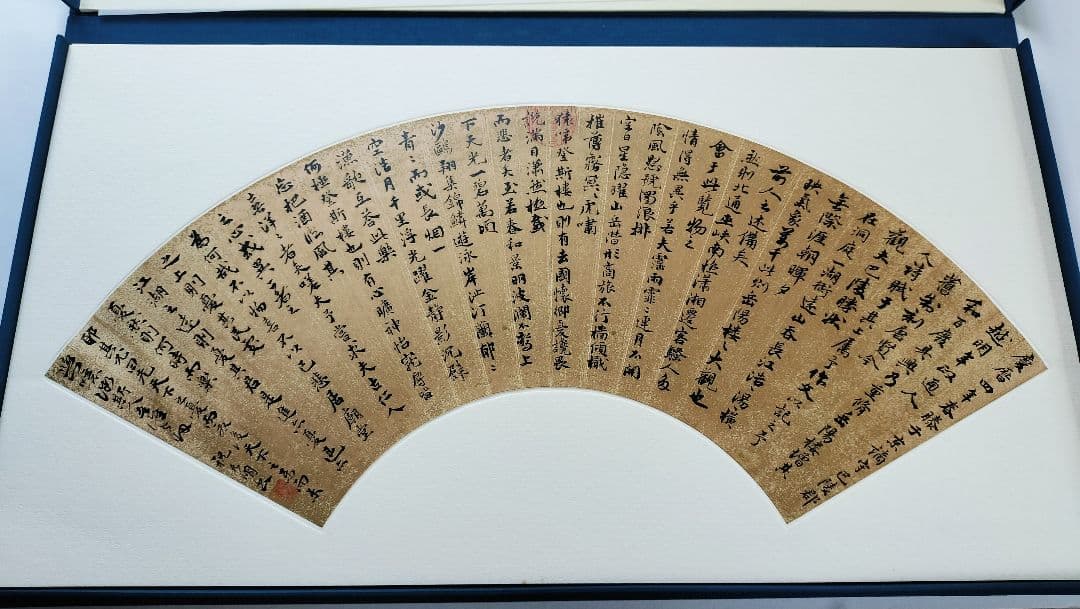 慶曆四年春滕子京謫守巴陵郡
越明年政通人
和百廢具興乃重修岳陽樓增其
舊制刻唐賢今
人詩賦于其上屬予作文以記之予
觀夫巴陵勝狀
在洞庭一湖銜遠山吞長江浩湯橫
無際涯朝暉夕
映氣象萬千此則岳陽樓之大觀也
前人之述備矣
然則北通巫峽南極瀟湘遷客騷人多
會于此覽物之
情得無異乎若夫霪雨霏々連月不開
陰風怒號濁浪排
空日星隱曜山岳潛形商旅不行檣傾檝
摧薄霧冥々虎嘯
猿啼登斯樓也則有去國懷鄉憂讒畏
譏滿目蕭然極感
而悲者矣至若春和景明波瀾不驚上
下天光一碧萬頃
沙鷗翔集錦鱗遊泳岸芷汀蘭郁々
青々而或長烟一
空皓月千里浮光躍金靜影沉璧
漁歌互答此樂
何極登斯樓也則有心曠神怡寵辱皆
忘把酒臨風其
喜洋々者矣嗟夫予嘗求夫古仁人
之心或異二者之
為何哉不以物喜不以己悲居廟堂
之上則憂其民處
江湖之遠則憂其君是進亦憂退亦
憂然則何時而樂
耶其先天下之憂而憂後天下之樂而樂
祝允明書